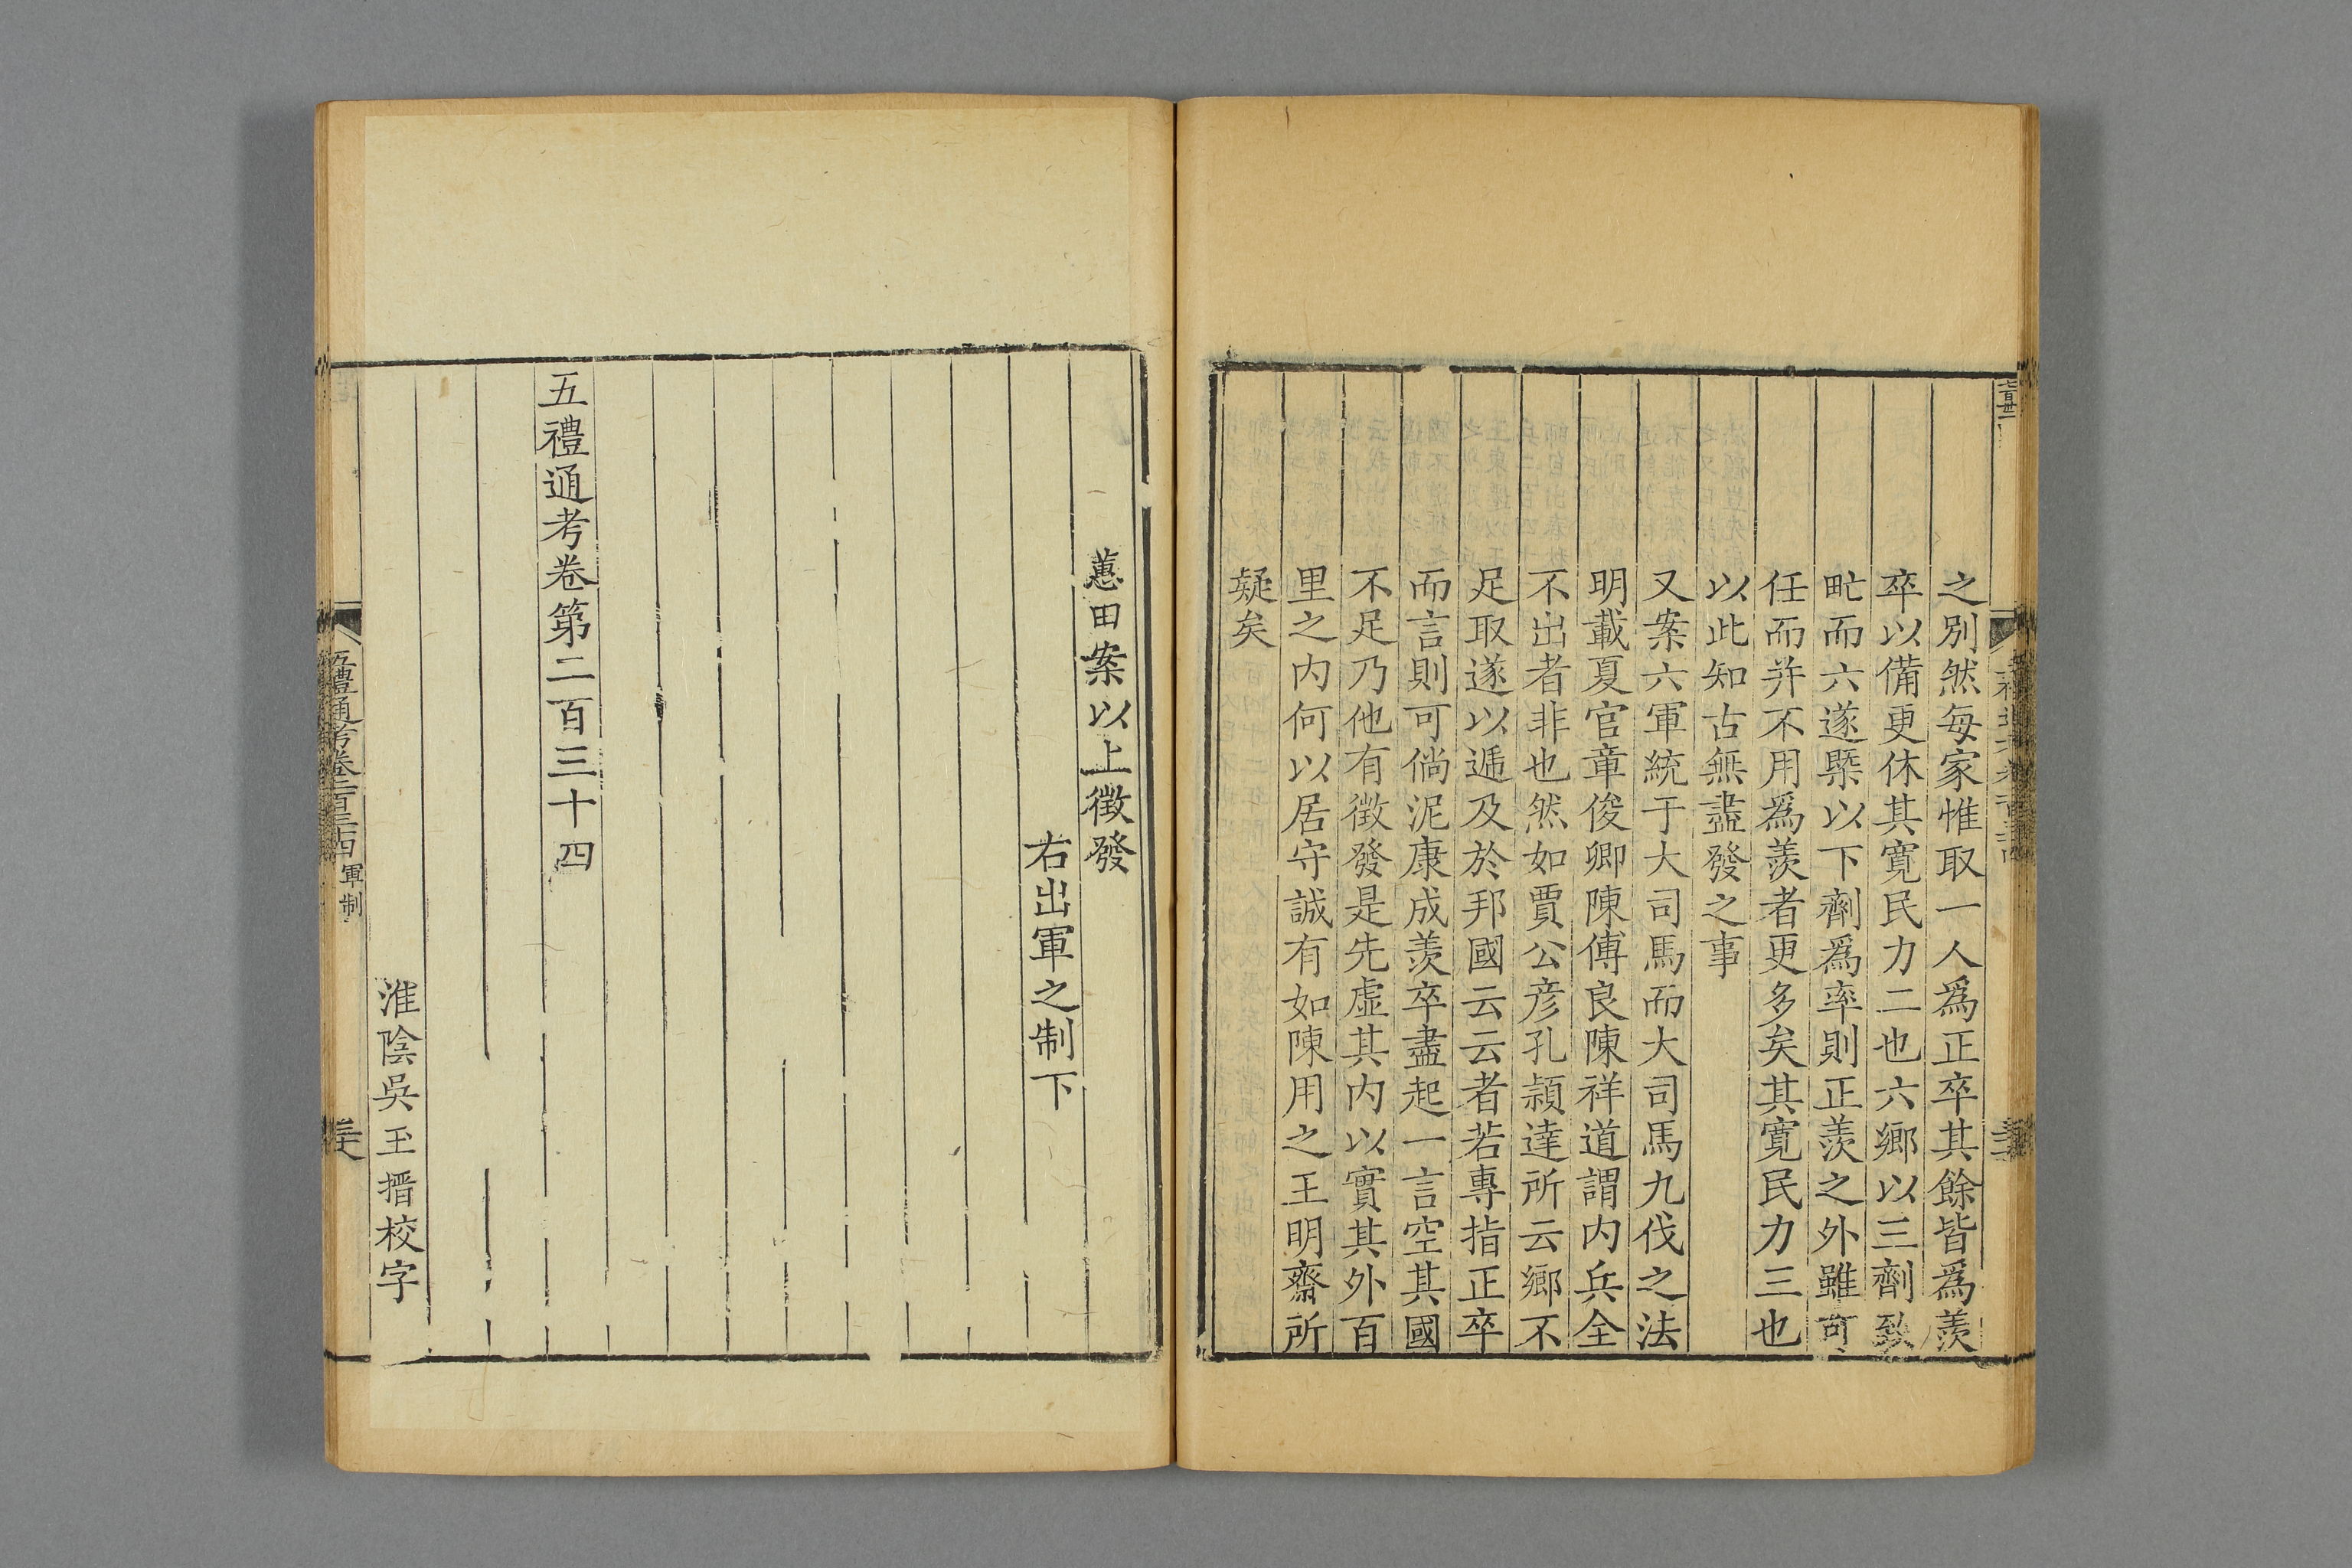 之別然每家惟取一人爲正卒其餘皆爲羨
卒以備更休其寬民力二也六鄉以三劑致
甿而六遂槩以下劑爲率則正羨之外雖可
任而并不用爲羨者更多矣其寬民力三也
以此知古無盡發之事
又案六軍統于大司馬而大司馬九伐之法
明載夏官章俊卿陳傅良陳祥道謂内兵全
不出者非也然如賈公彦孔頴達所云鄉不
足取遂以遞及於邦國云云者若專指正卒
而言則可倘泥康成羨卒盡起一言空其國
不足乃他有徴發是先虛其内以實其外百
里之内何以居守誠有如陳用之王明齋所
疑矣
蕙田案以上徴發
右出軍之制下
五禮通考卷第二百三十四
淮陰吳玉搢校字
五禮通考卷二百三十四 軍制